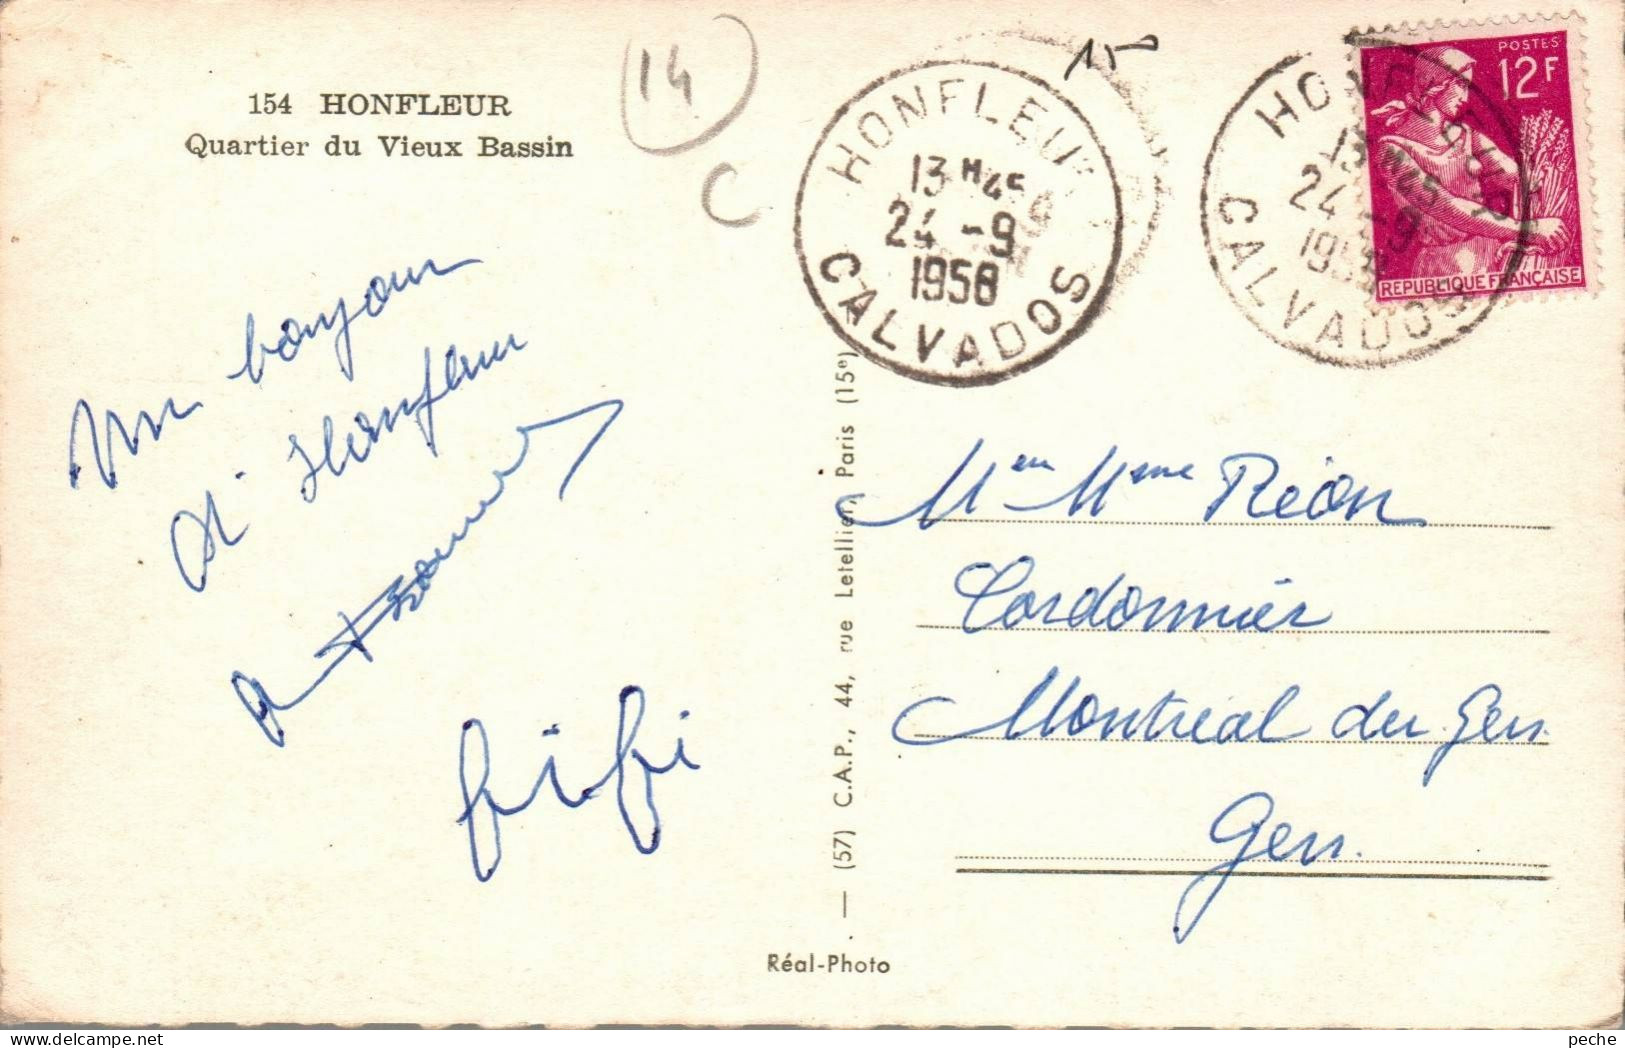 154 HONFLEUR
Quartier du Vieux Bassin
14
C
15
HONFLEUR
13 H 45
24 - 9
1958
CALVADOS
HONFLEUR
13 H 45
24 - 9
1958
CALVADOS
POSTES
12F
REPUBLIQUE FRANÇAISE
Un bonjour
d'Honfleur
fifi
(57) C.A.P., 44, rue Letellier, Paris (15e)
Réal-Photo
Mr en Mme Réon
Cordonnier
Montréal du Gers
Gers.
peche